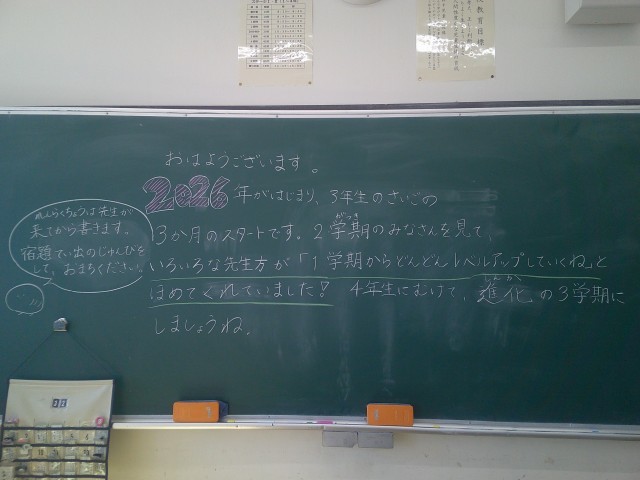 おはようございます。
2026年がはじまり、3年生のさいごの
3か月のスタートです。2学期のみなさんを見て、
がっき
いろいろな先生方が「1学期からどんどんレベルアップしていくね」と
ほめてくれていました! 4年生にむけて、進化の3学期に
しんか
しましょうね。
れんらくちょうは先生が
来てから書きます。
宿題てい出のじゅんびを
して、おまちください。
校教育目標